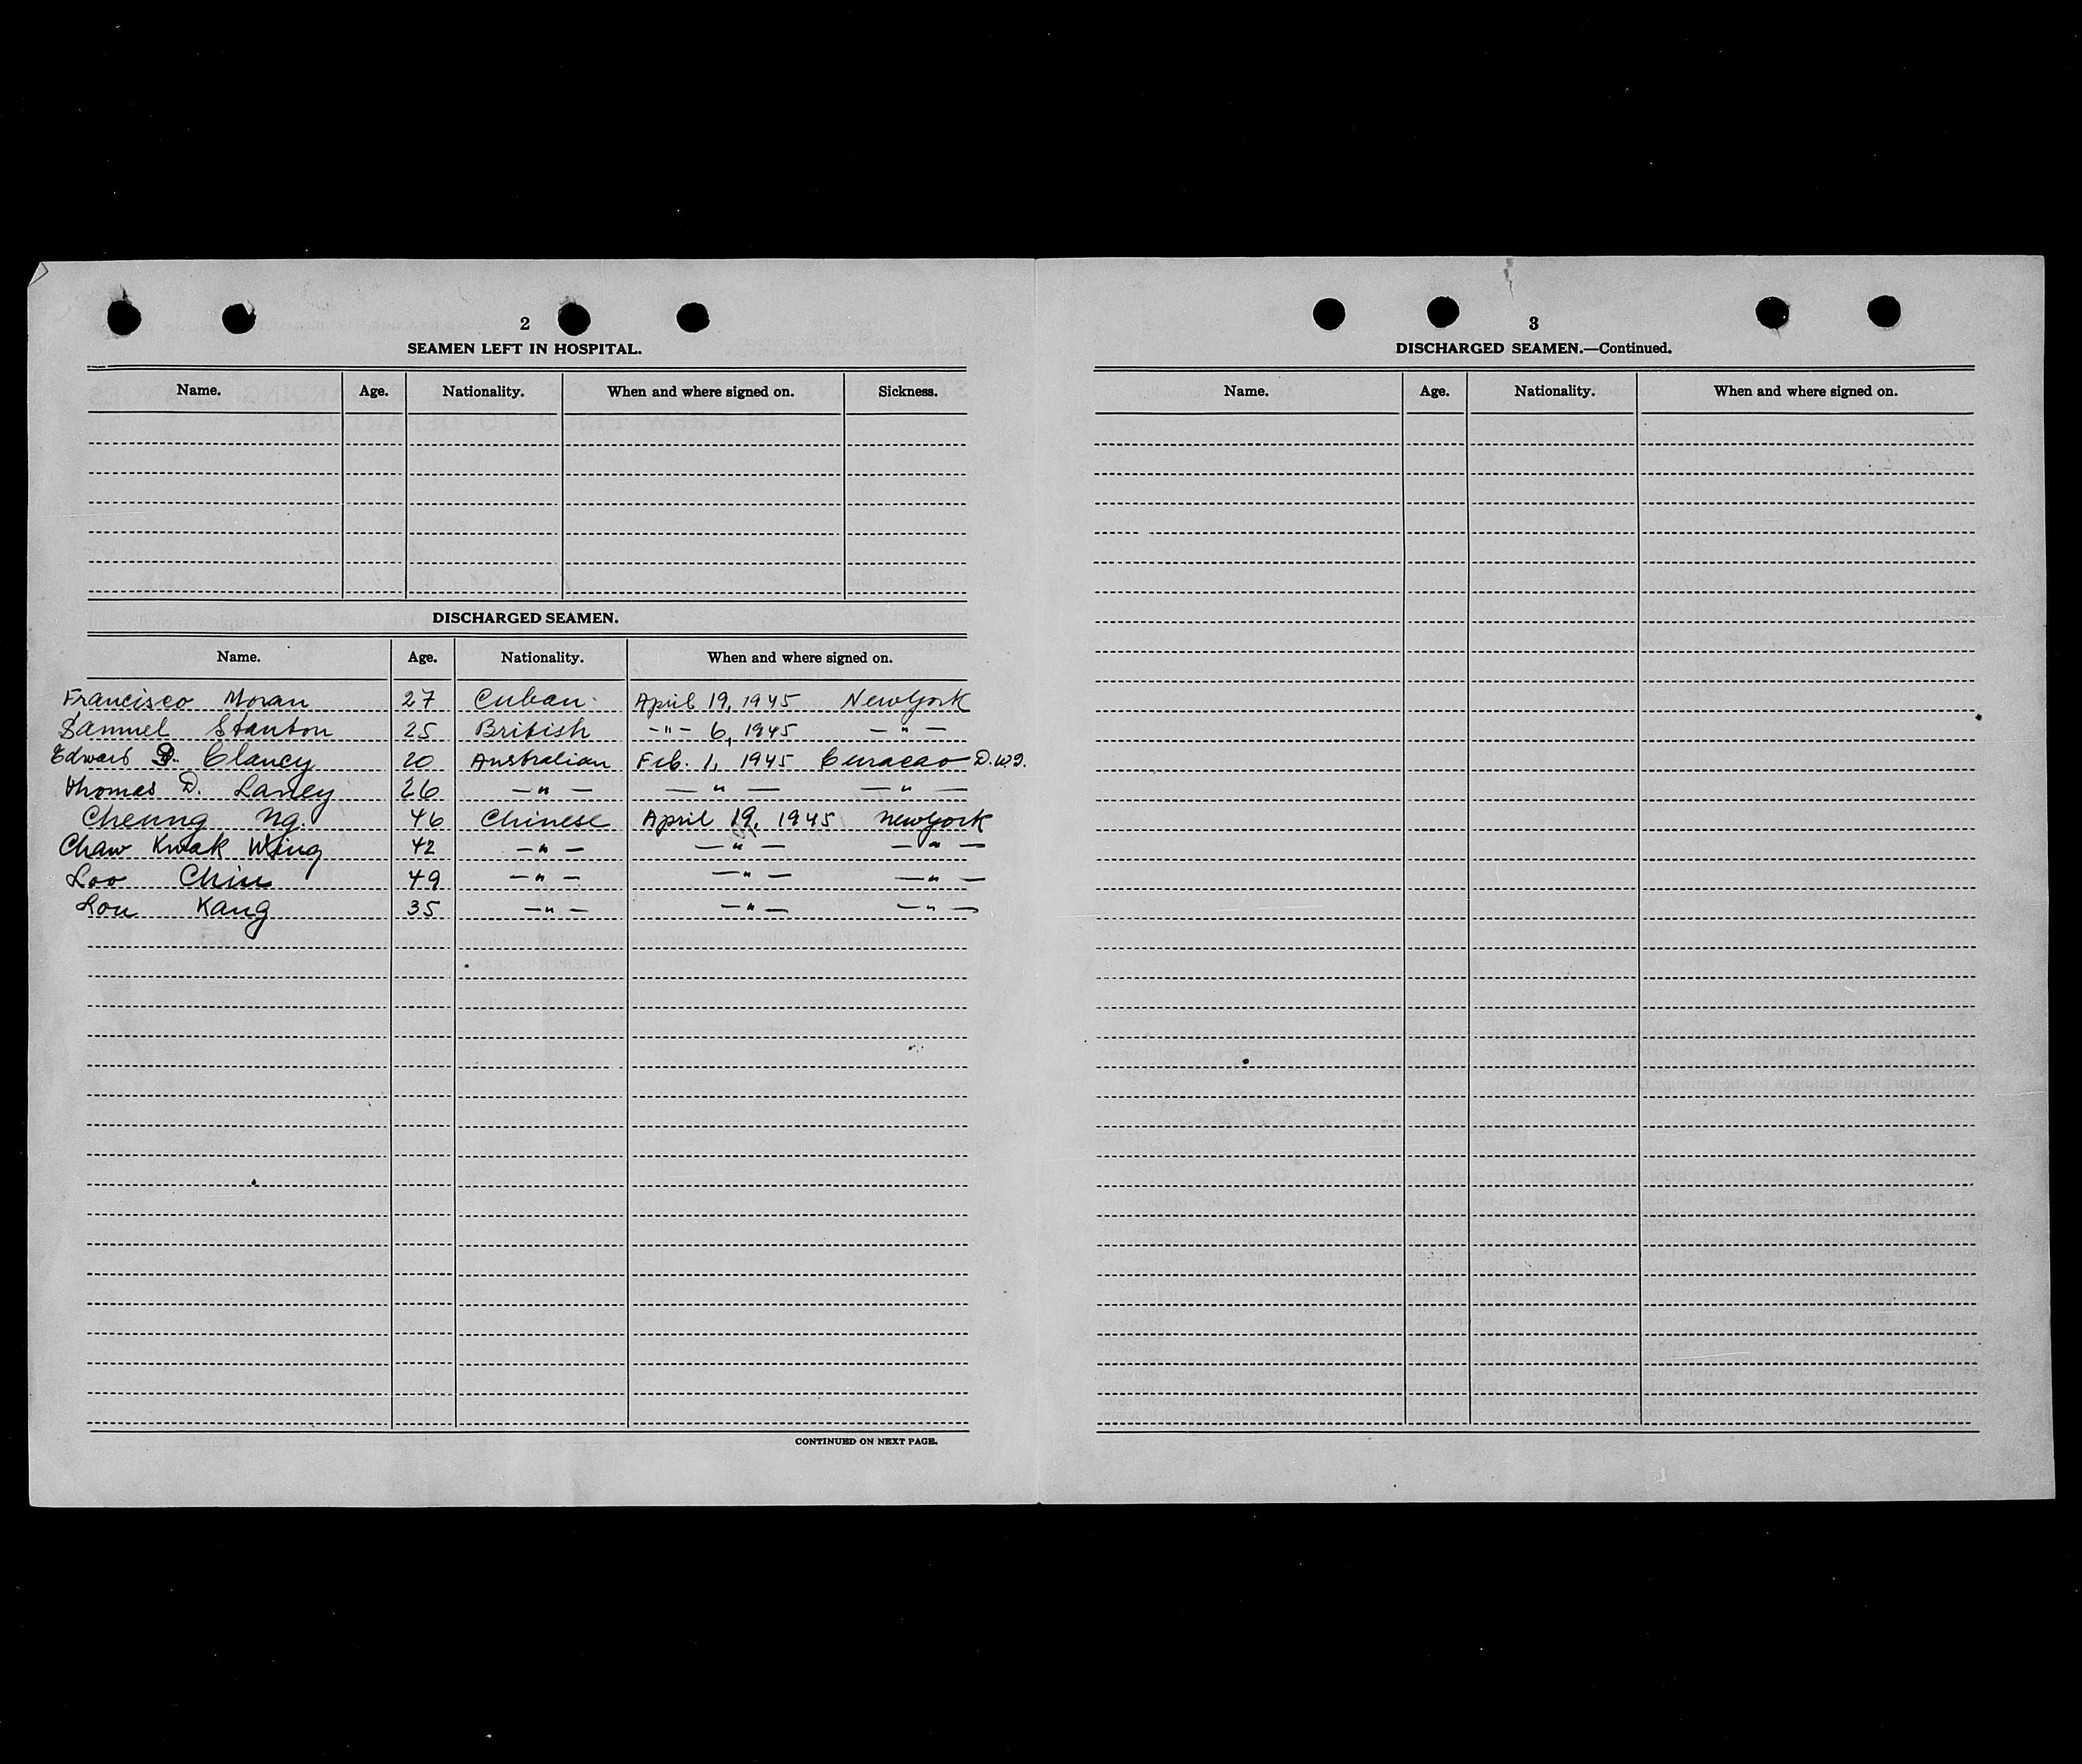 2
SEAMEN LEFT IN HOSPITAL.
Name. Age. Nationality. When and where signed on. Sickness.
DISCHARGED SEAMEN.
Name. Age. Nationality. When and where signed on.
Francisco Moran 27 Cuban April 19, 1945 New York
Samuel Stanton 25 British -"- 6, 1945 -"-
Edward Clancy 20 Australian Feb. 1, 1945 Curacao D.W.I.
Thomas D. Laney 26 -"- -"- -"-
Cheung Ng. 46 Chinese April 19, 1945 New York
Chaw Kwak Wing 42 -"- -"- -"-
Loo Chin 49 -"- -"- -"-
Lou Kang 35 -"- -"- -"-
CONTINUED ON NEXT PAGE.
3
DISCHARGED SEAMEN.—Continued.
Name. Age. Nationality. When and where signed on.